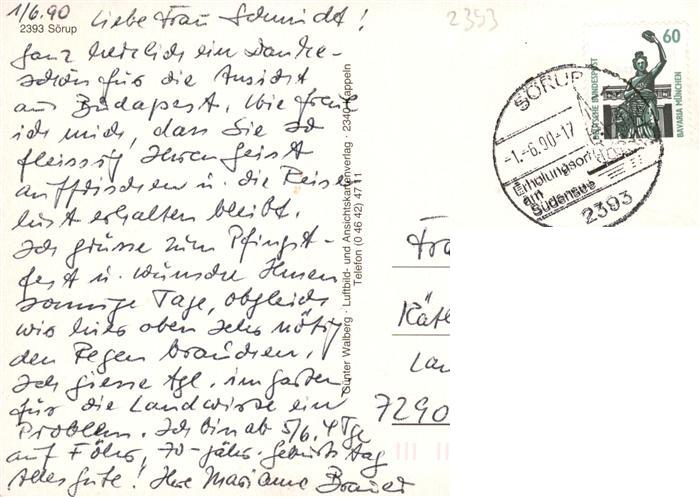 1/6.90
2393 Sörup
Liebe Frau Schmidt!
ganz herzlich ein Danke-
schön für die Ansicht
aus Budapest. Wie freue
ich mich, dass Sie so
fleissig Ihren Geist
auffrischen u. die Reise
lust erhalten bleibt.
Ich grüsse zum Pfingst-
fest u. wünsche Ihnen
sonnige Tage, obgleich
wir hier oben sehr nötig
den Regen brauchen.
Ich giesse tgl. im Garten
für die Landwirte ein
Problem. Ich bin ab 5/6. 4 Tge
auf Föhr, 70-jähr. Geburtstag
Alles Gute! Ihre Marianne
Günter Walberg · Luftbild- und Ansichtskartenverlag · 2340 Kappeln
Telefon (0 46 42) 47 11
2353
60
DEUTSCHE BUNDESPOST
BAVARIA MÜNCHEN
SÖRUP
-1.-6.90-17
Erholungsort
am
Südensee
2393
Fra
Kät
Lan
7290